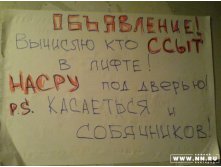 ОБЪЯВЛЕНИЕ!
ВЫЧИСЛЮ КТО ССЫТ
В ЛИФТЕ!
НАСРУ ПОД ДВЕРЬЮ!
P.S. КАСАЕТЬСЯ И
СОБАЧНИКОВ!
WWW.NN.RU